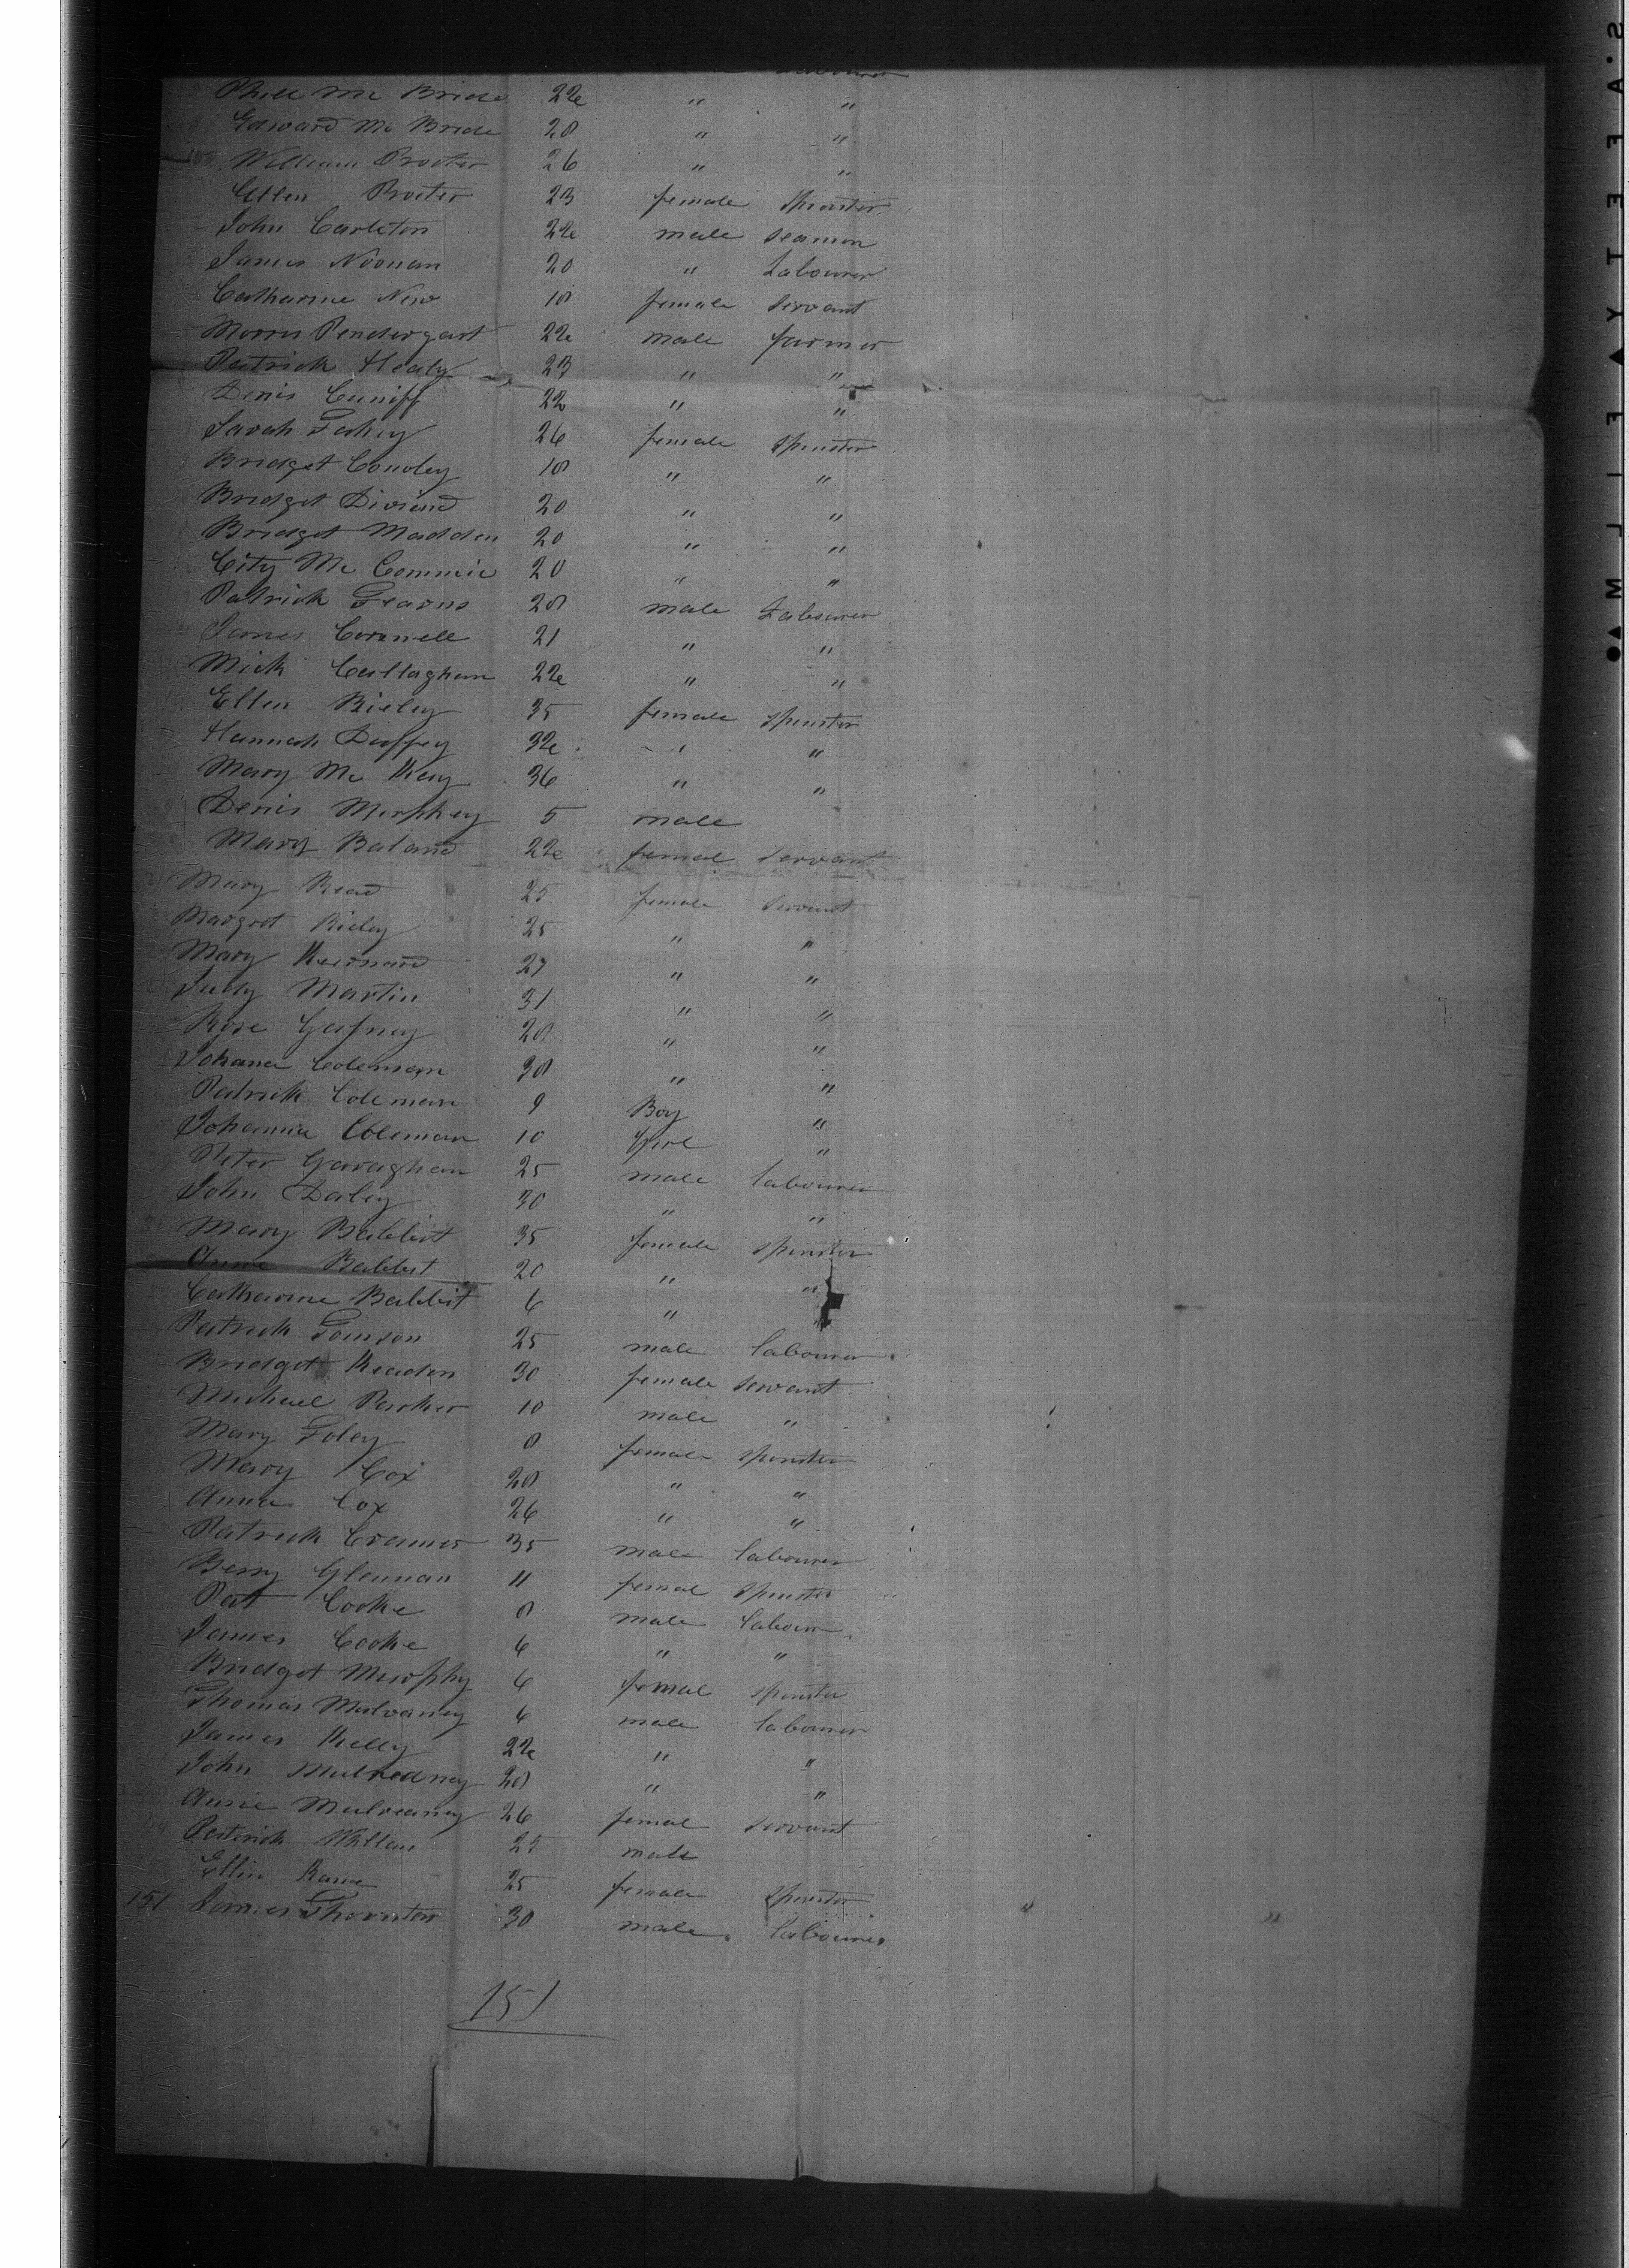 Phill Mc Bride 22 " "
Edward Mc Bride 28 " "
100 William Procter 26 " "
Ellen Procter 23 female Spinster
John Carleton 22 male seamen
James Noonan 20 " Labourer
Catharine New 18 female servant
Morris Pendergart 22 male farmer
Patrick Healy 23 " "
Denis Cuniff 22 " "
Sarah Fahey 26 female spinster
Bridget Conoley 18 " "
Bridget 20 " "
Bridget Madden 20 " "
City Mc Commic 20 " "
Patrick Fearns 28 male Labourer
James Cornnell 21 " "
Mick Callaghan 22 " "
Ellen Rieley 35 female spinster
Hannah Duffey 32 " "
Mary Mc Kay 36 " "
Denis Murphey 5 male
Mary Boland 22 female servant
Mary Read 25 female servant
Margret Rieley 25 " "
Mary 27 " "
Judy Martin 31 " "
Rose Gafney 28 " "
Johana Coleman 38 " "
Patrick Coleman 9 Boy "
Johanna Coleman 10 Girl "
Peter Garaghan 25 male labourer
John Daley 30 " "
Mary Babbit 35 female spinster
Anne Babbit 20 " "
Catharine Babbit 6 "
Patrick 25 male labourer
Bridget Readen 30 female servant
Michael Parker 10 male "
Mary Foley 8 female spinster
Mary Cox 28 " "
Anna Cox 26 " "
Patrick Cramer 35 male labourer
Bessy Glennan 11 femal spinster
Pat Cooke 8 male labour
James Cooke 6 " "
Bridget Murphy 6 femal spinster
Thomas Mulvaney 6 male labourer
James Kelly 22 " "
John Mulveaney 28 " "
Annie Mulveaney 26 femal servant
Patrick 25 male
Ellin 25 female spinster
151 James Thornton 30 male labourer
151
SAFETY FILM